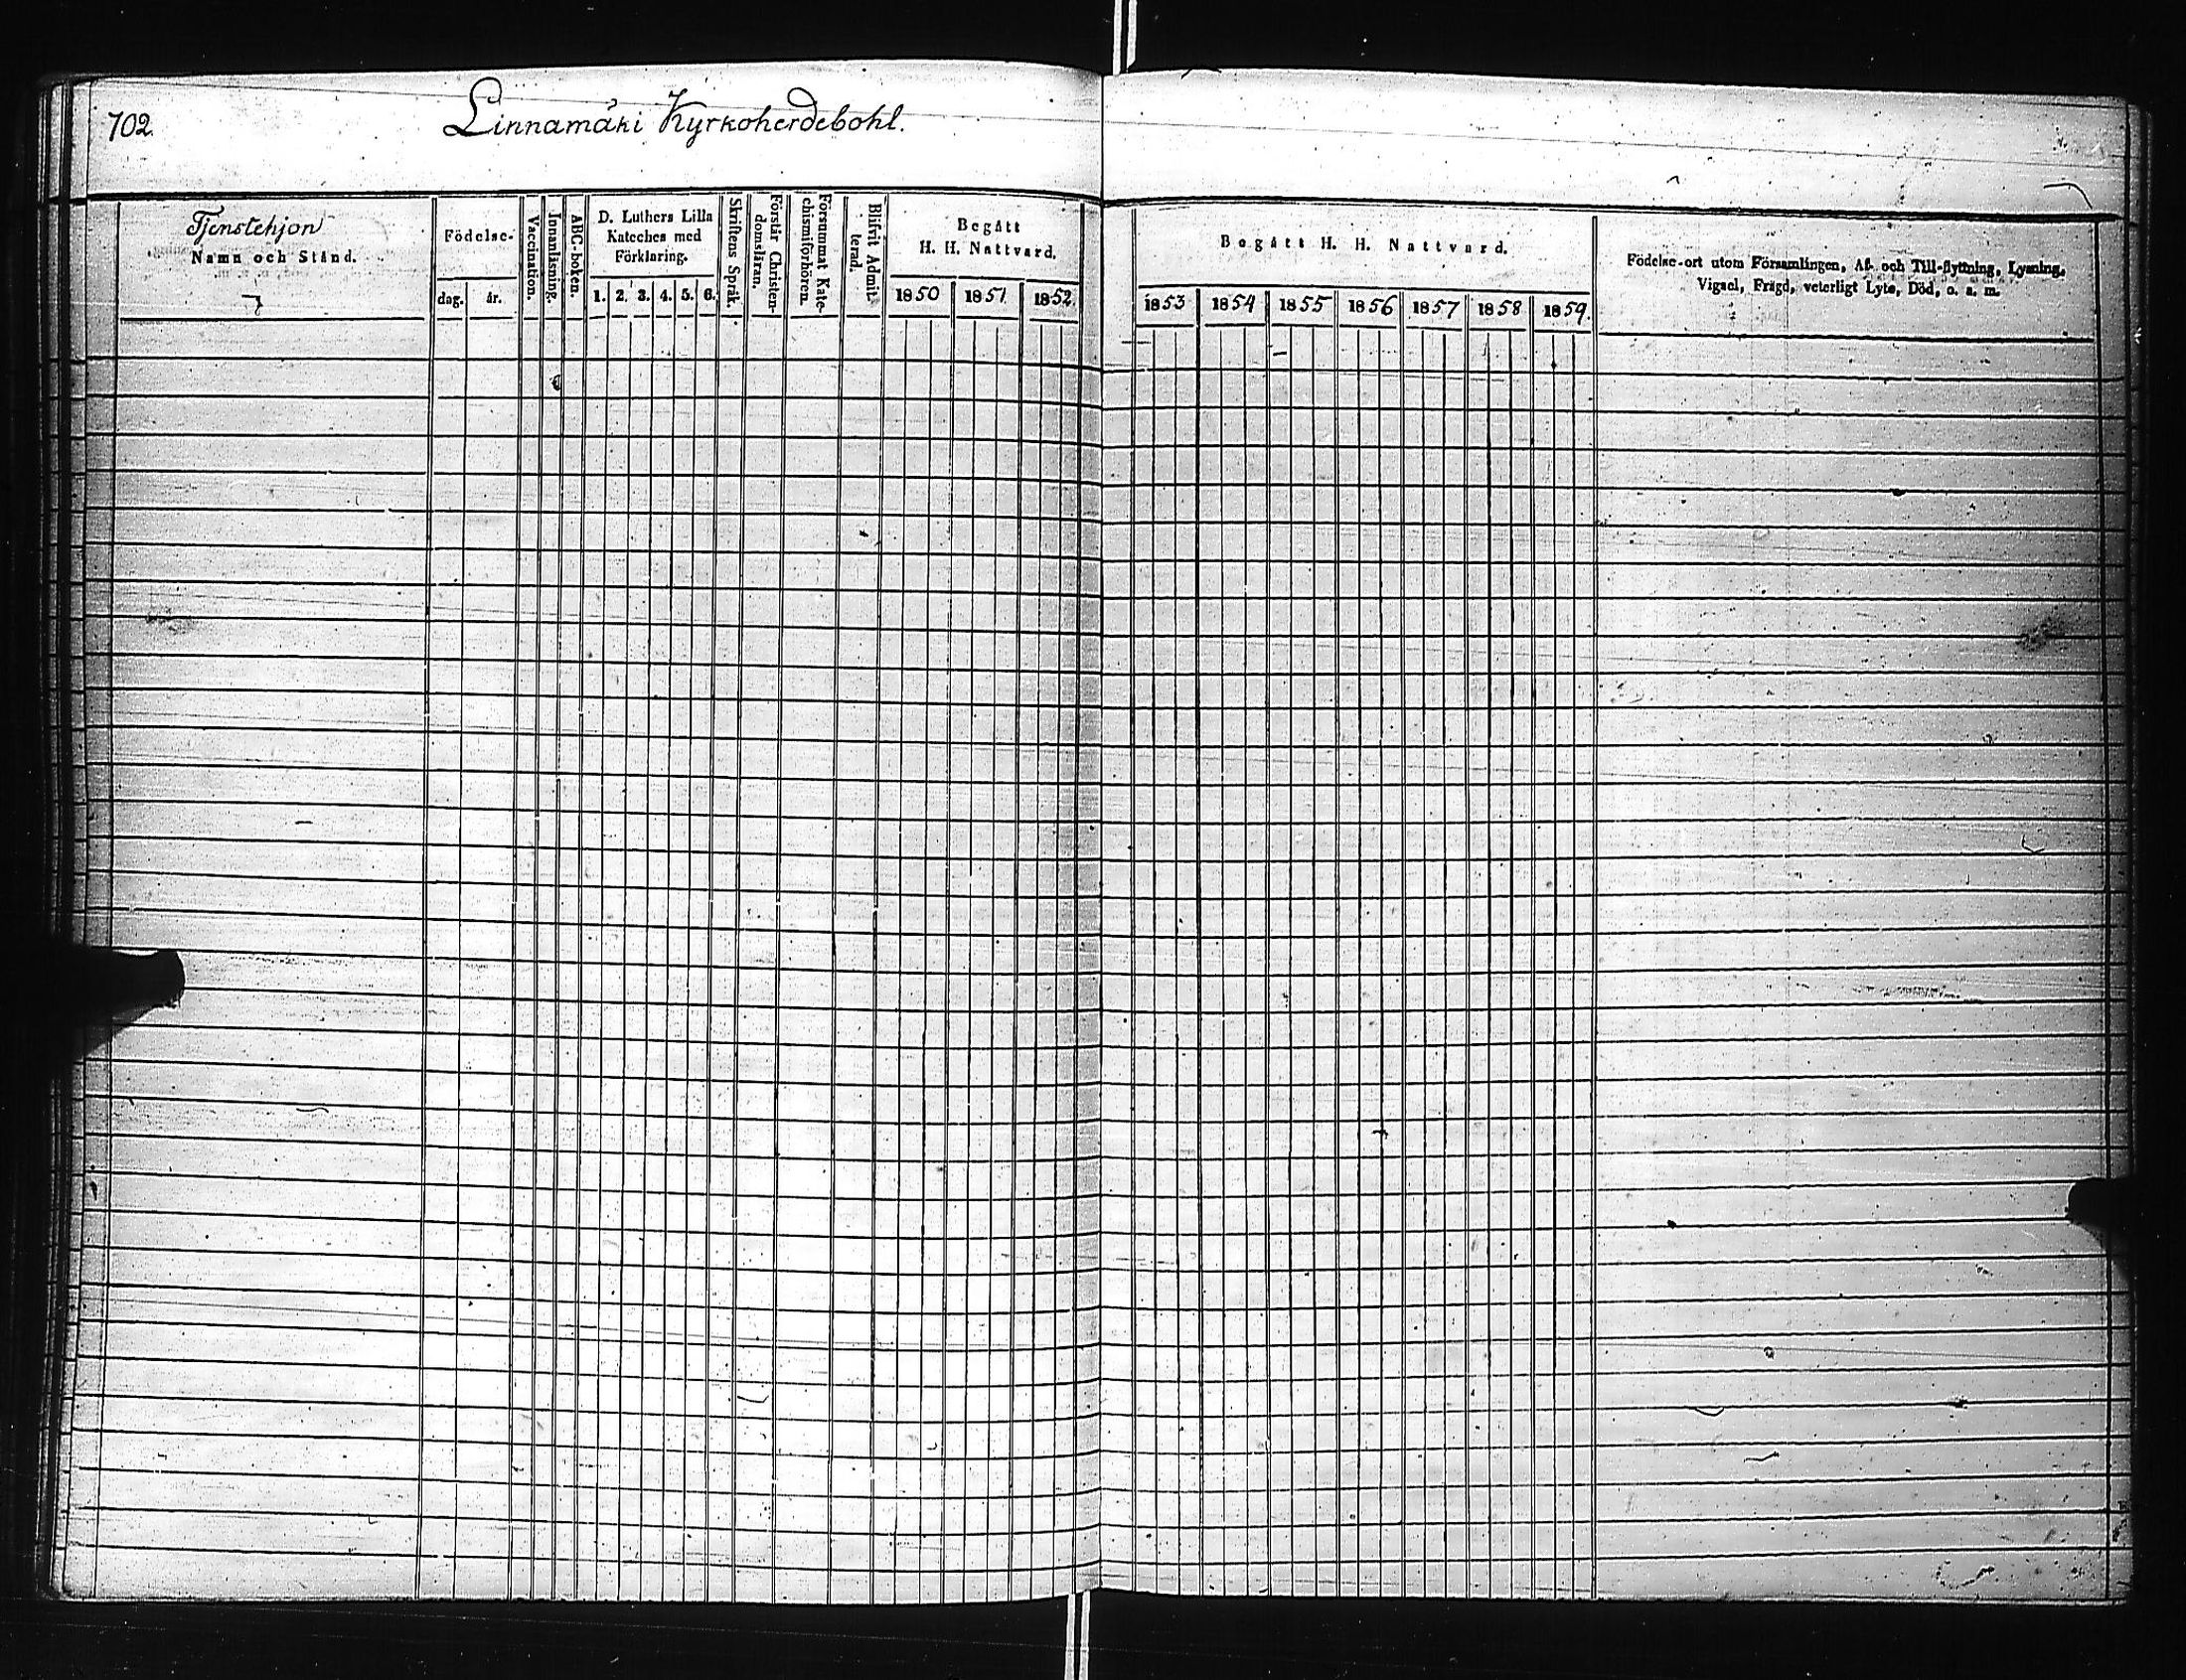 702.
Linnamäki Kyrkoherdebohl.
Tjenstehjon
Namn och Stånd.
Födelse-
dag. år.
Vaccination.
Innanläsning.
ABC-boken.
D. Luthers Lilla
Kateches med
Förklaring.
1. 2. 3. 4. 5. 6.
Skriftens Språk.
Förstår Christen-
domsläran.
Försummat Kate-
chismiförhören.
Blifvit Admit-
terad.
Begått
H. H. Nattvard.
1850 1851 1852.
Begått H. H. Nattvard.
1853 1854 1855 1856 1857 1858 1859.
Födelse-ort utom Församlingen, Af- och Till-flyttning, Lysning,
Vigsel, Frägd, veterligt Lyte, Död, o. s. m.